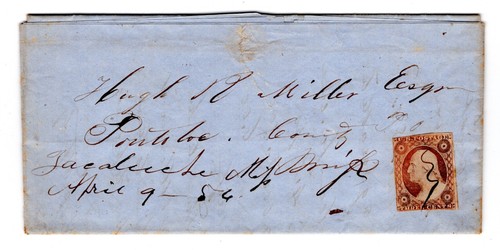 Hugh R Miller Esqr
Pontotoc County
Tacaleeche Mi
April 9 - 56
U.S. POSTAGE
THREE CENTS